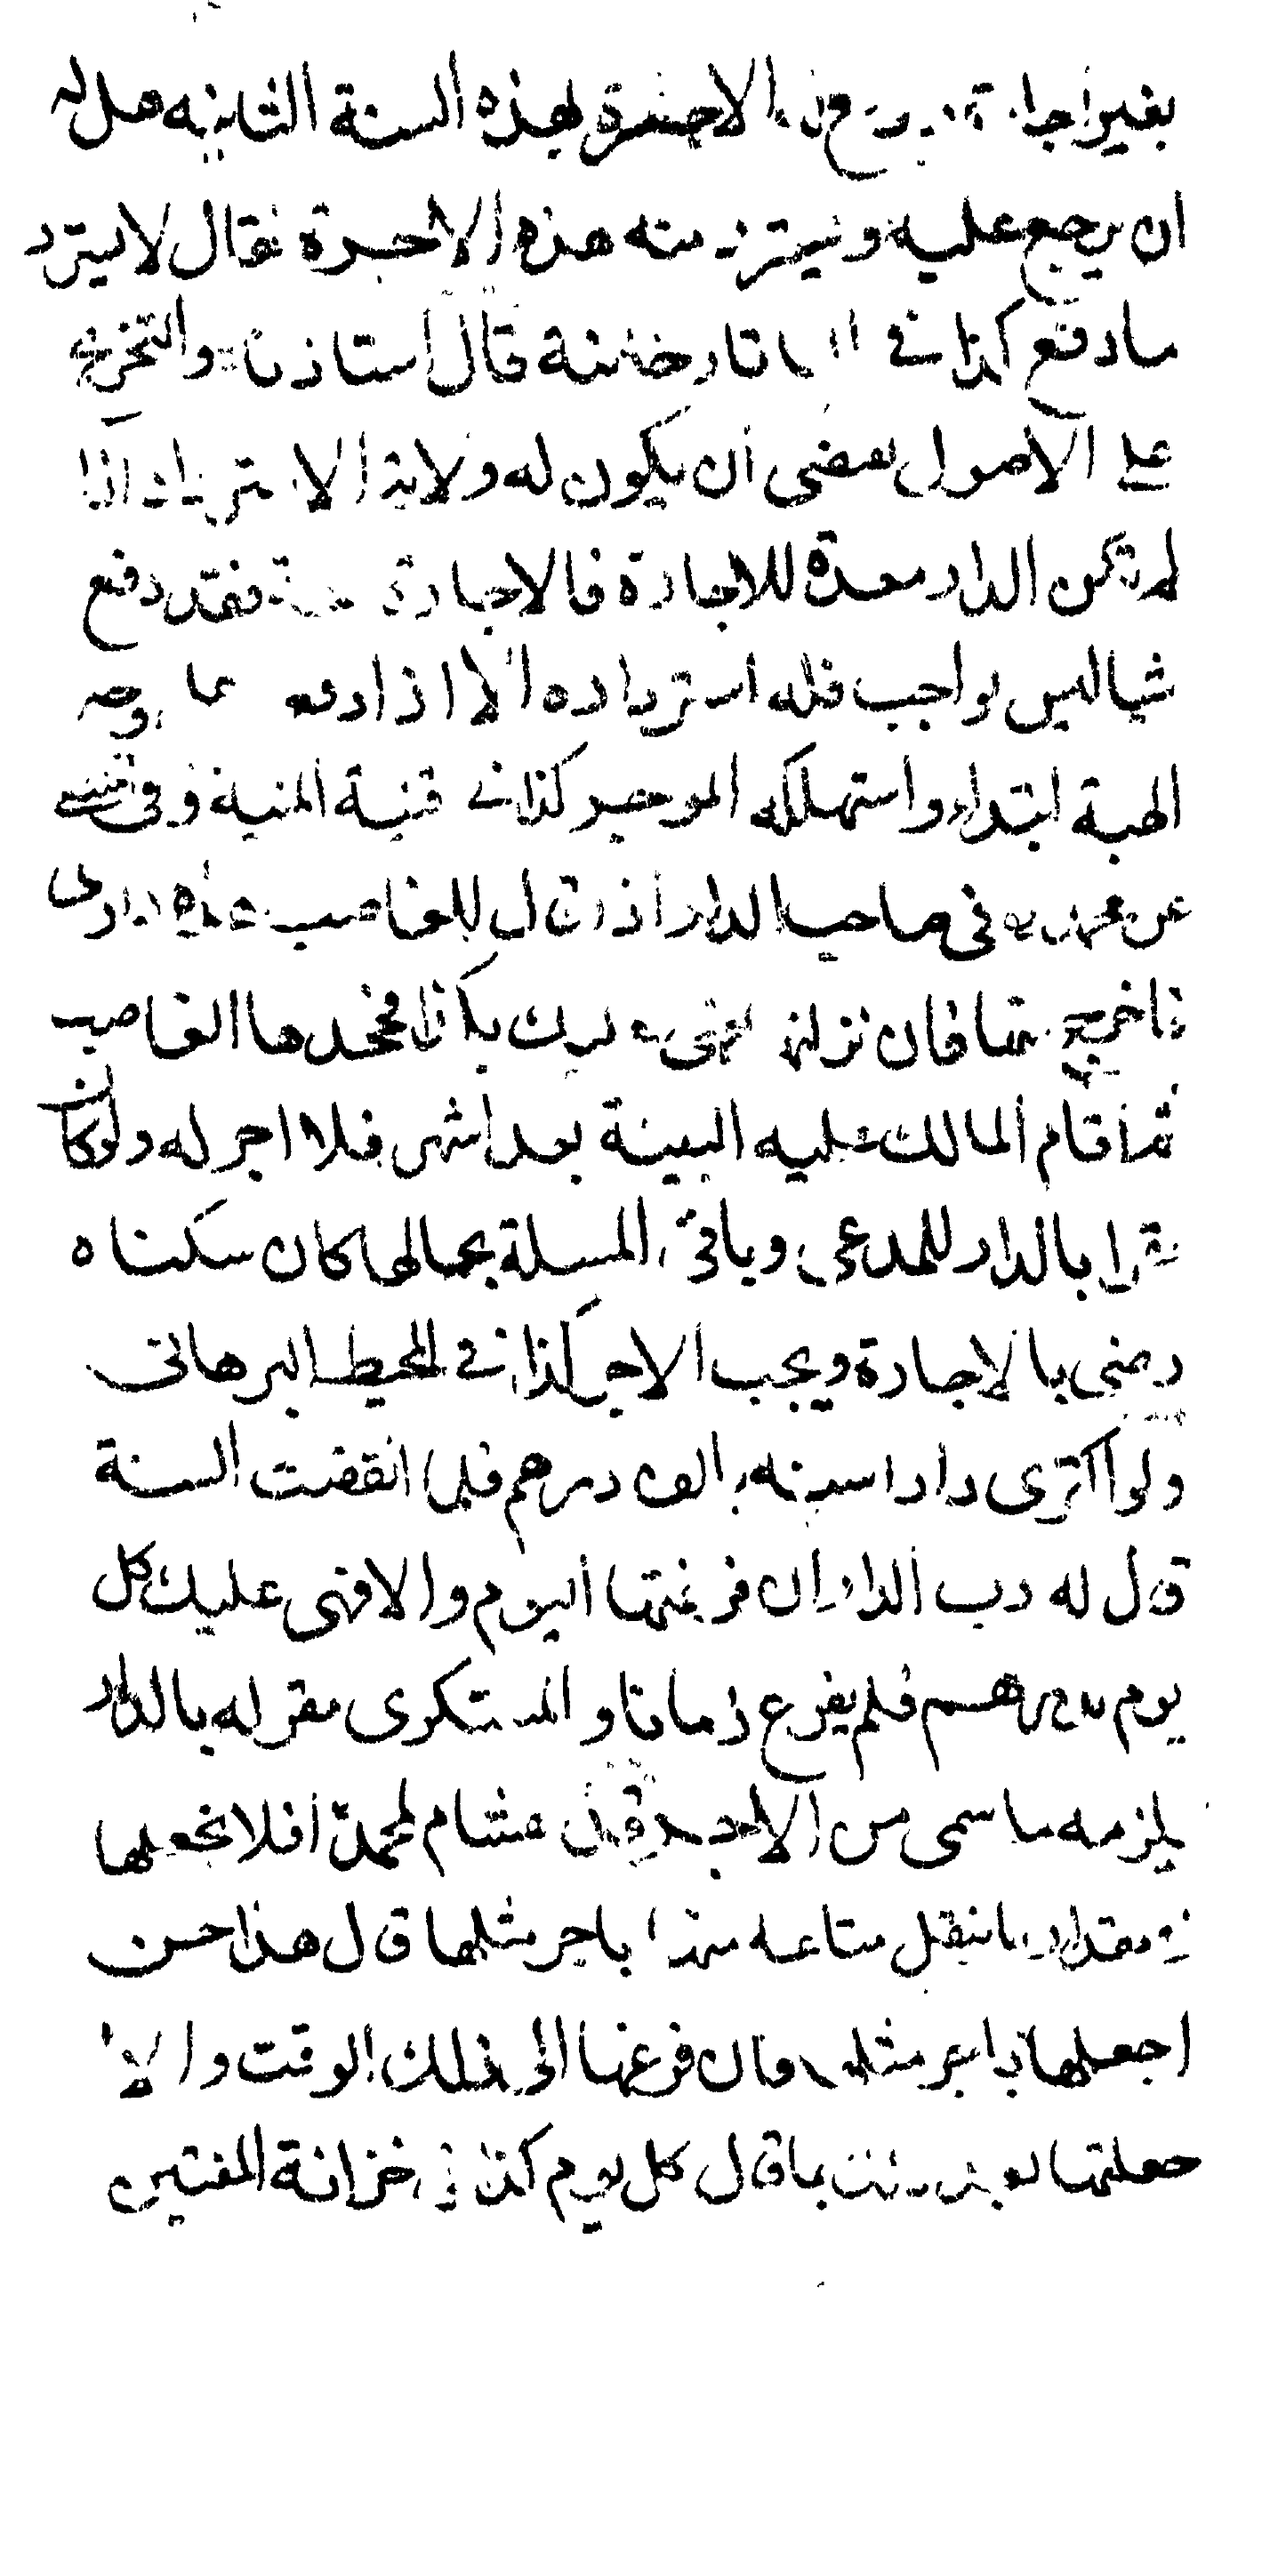 بغير اجارة ودفع الاجرة لهذه السنة الثانيه هل له
ان يرجع عليه ويسترد منه هذه الاجرة فقال لايسترد
مادفع كذا في التاتارخانية قال استاذنا والتخريج
على الاصول يقتضى ان يكون له ولاية الاسترداد اذا
لم تكن الدار معدة للاجارة فالاجارة فقد دفع
شيا ليس بواجب فله استرداده الا اذا دفعه على وجه
الهبة ابتداء واستهلكه الموجر كذا في قنية المنية وفى
عن محمد فى صاحب الدار اذا قال للغاصب هذه دارى
فاخرج منها فان نزلتها فهى عليك بكذا فجحدها الغاصب
ثم اقام المالك عليه البينة بعد اشهر فلا اجر له ولوكان
مقرا بالدار للمدعى وباقى المسلة بحالها كان سكناه
رضى بالاجارة ويجب الاجر كذا في المحيط البرهانى
ولو اكترى دارا سنه بالف درهم فلما انقضت السنة
قال له رب الدار ان فرغتها اليوم والا فهى عليك كل
يوم بدرهم فلم يفرغ زمانا والمستكرى مقر له بالدار
يلزمه ماسمى من الاجر قال هشام لمحمد افلا نجعلها
في مقدار ماينقل متاعه منها باجر مثلها قال هذا حسن
اجعلها باجر مثلها فان فرغها الى ذلك الوقت والا
جعلتها بعد ذلك بما قال كل يوم كذا فى خزانة المفتين